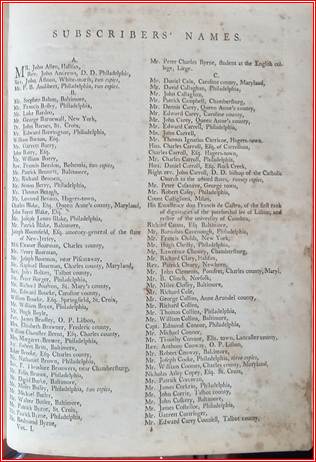 SUBSCRIBERS' NAMES.
A.
MR. John Allen, Halifax,
Rev. John Andrews, D. D. Philadelphia,
Rev. John Ashton, White-marsh, two copies,
Mr. P. B. Audibert, Philadelphia, two copies.
B.
Mr. Stephen Bahon, Baltimore,
Mr. Francis Bailey, Philadelphia,
Mr. Luke Barden,
Mr. George Barnewall, New York,
Dr. John Barnes, St. Croix,
Mr. Edward Barrington, Philadelphia,
Mr. Garett Barry,
John Barry, Esq.
Mr. William Barry,
Rev. Francis Beeston, Bohemia, two copies,
Mr. Patrick Bennett, Baltimore,
Mr. Richard Bennett,
Mr. Philadelphia,
Mr. Thomas
Mr. Leonard Hagers-town,
Charles Blake, Esq. Queen Anne's county, Maryland,
John Blake, Esq.
Mr. James Blake, Philadelphia,
Mr. Patrick Blake, Baltimore,
Joseph Bloomfield, Esq. attorney-general of the state
of New-Jersey,
Mr. Boarman, Charles county,
Mr. Boarman,
Mr. Joseph Boarman, near Piscataway,
Mr. Raphael Boarman, Charles county, Maryland,
Rev. John Bolton, Talbot county,
Mr. Peter Philadelphia,
Mr. Richard St. Mary's county,
Mr. Edward Bourke, Caroline county,
William Bourke, Esq. Springfield, St. Croix,
Mr. William Boyce, Philadelphia,
Mr. Hugh Boyle,
Rev. James Bradley, O. P. Lisbon,
Mrs. Elizabeth Frederic county,
William Chandler Brent, Esq. Charles county,
Mrs. Margaret Philadelphia,
Baltimore,
Esq. Charles county,
Mr. Nathaniel Brown, Philadelphia,
near Chambersburg,
Mr. Philadelphia,
Mr. Baltimore,
Mr. James Butler, Philadelphia, two copies,
Mr. Michael Butler,
Mr. Walter Butler, Baltimore,
Mr. Patrick Byrne, St. Croix,
Mr. Patrick Byrne, Philadelphia,
Mr. Redmond Byrne,
Vol. I.
Mr. Peter Charles Byrne, student at the English col-
lege, Liege.
C.
Mr. Daniel Cain, Caroline county, Maryland,
Mr. David Callaghan, Philadelphia,
Mr. John Callaghan,
Mr. Patrick Campbell, Chambersburg,
Mr. Dennis Carey, Queen Anne's county,
Mr. Edward Carey, Caroline county,
Mr. John Carey, Queen Anne's county,
Mr. Edward Carrell, Philadelphia,
Mr. John Carrell,
Mr. Thomas Ignatius Hagers-town,
Hon. Charles Carroll, Esq. of Carrollton,
Charles Carroll, Esq. Hagers-town,
Mr. Charles Carroll, Philadelphia,
Hon. Daniel Carroll, Esq. Rock Creek,
Right rev. John Carroll, D. D. bishop of the Catholic
Church in the united States, twenty copies,
Mr. Peter Casanave, George-town,
Mr. Robert Philadelphia,
Count Castiglioni, Milan,
His Excellency don Francis de Castro, of the first rank
of dignitaries of the patriarchal see of Lisbon, and
rector of the university of Coimbra,
Richard Caton, Esq. Baltimore,
Mr. Barnabas Philadelphia,
Mr. Francis Childs, New York,
Mr. Hugh Philadelphia,
Mr. Lawrence Chambersburg,
Mr. Richard Clary, Halifax,
Rev. Patrick Cleary, Newbern,
Mr. John Clements, Pomfret, Charles county, Maryl.
Mr. Norfolk,
Mr. Baltimore,
Mr. Richard Cole,
Mr. George Collins, Anne Arundel county,
Mr. Richard Collins,
Mr. Thomas Collins, Philadelphia,
Mr. William Collins, Baltimore,
Capt. Edmond Connor, Philadelphia,
Mr. Michael Connor,
Mr. Timothy Connor, Lancaster county,
Rev. Anthony Conway, O. P. Lisbon,
Mr. Robert Conway, Baltimore,
Mr. Joseph Cooke, Philadelphia, three copies,
Mr. William Coomes, Charles county, Maryland,
Nicholas Copey, Esq. St. Croix,
Mr. Patrick
Mr. James Corkrin, Philadelphia,
Mr. John Corrie, Talbot county,
Mr. John Baltimore,
Mr. James Philadelphia,
Mr. Garrett
Mr. Edward Carey Talbot county,